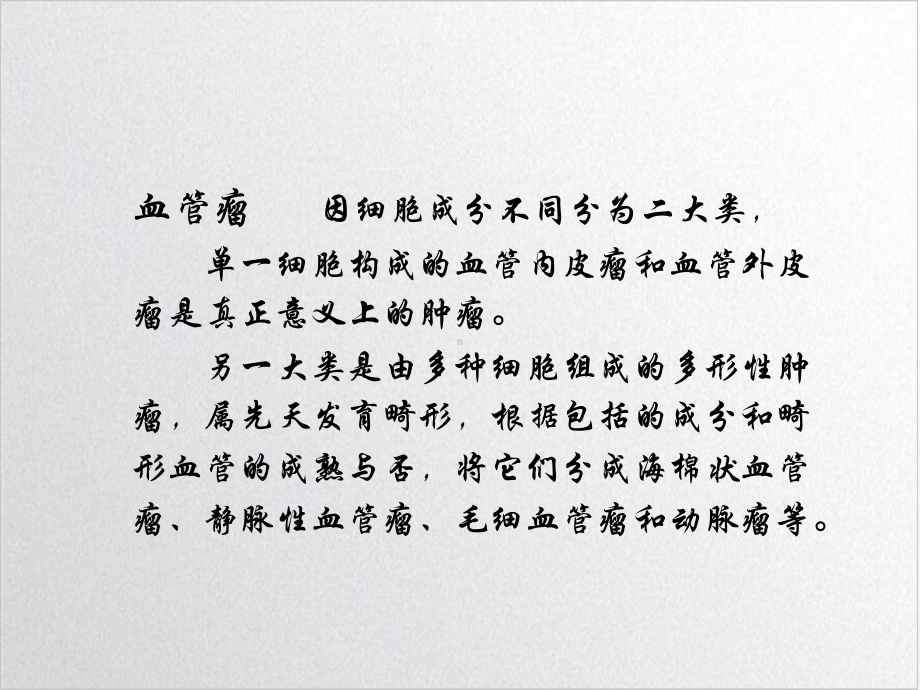 血管瘤 因细胞成分不同分为二大类，
单一细胞构成的血管内皮瘤和血管外皮
瘤是真正意义上的肿瘤。
另一大类是由多种细胞组成的多形性肿
瘤，属先天发育畸形，根据包括的成分和畸
形血管的成熟与否，将它们分成海棉状血管
瘤、静脉性血管瘤、毛细血管瘤和动脉瘤等。